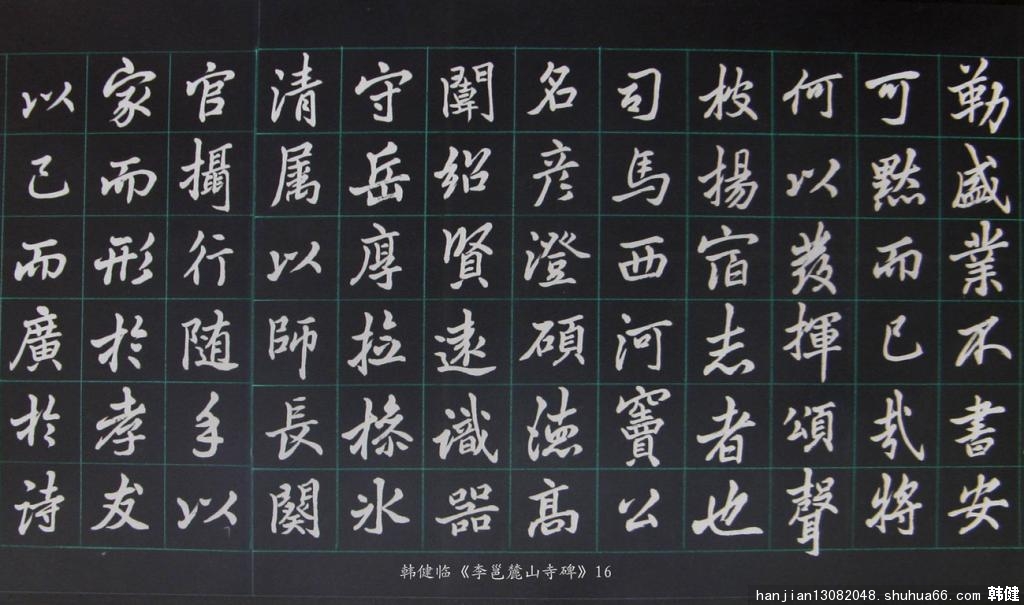 勒盛業不書安
可黙而已哉將
何以發揮頌聲
披揚宿志者也
司馬西河竇公
名彦澄碩德高
闡紹賢遠識器
守岳厚撿操氷
清属以師長闕
官攝行随手以
家而形於孝友
以己而廣於詩
韩健临《李邕麓山寺碑》16
hanjian13082048.shuhua66.com 韩健